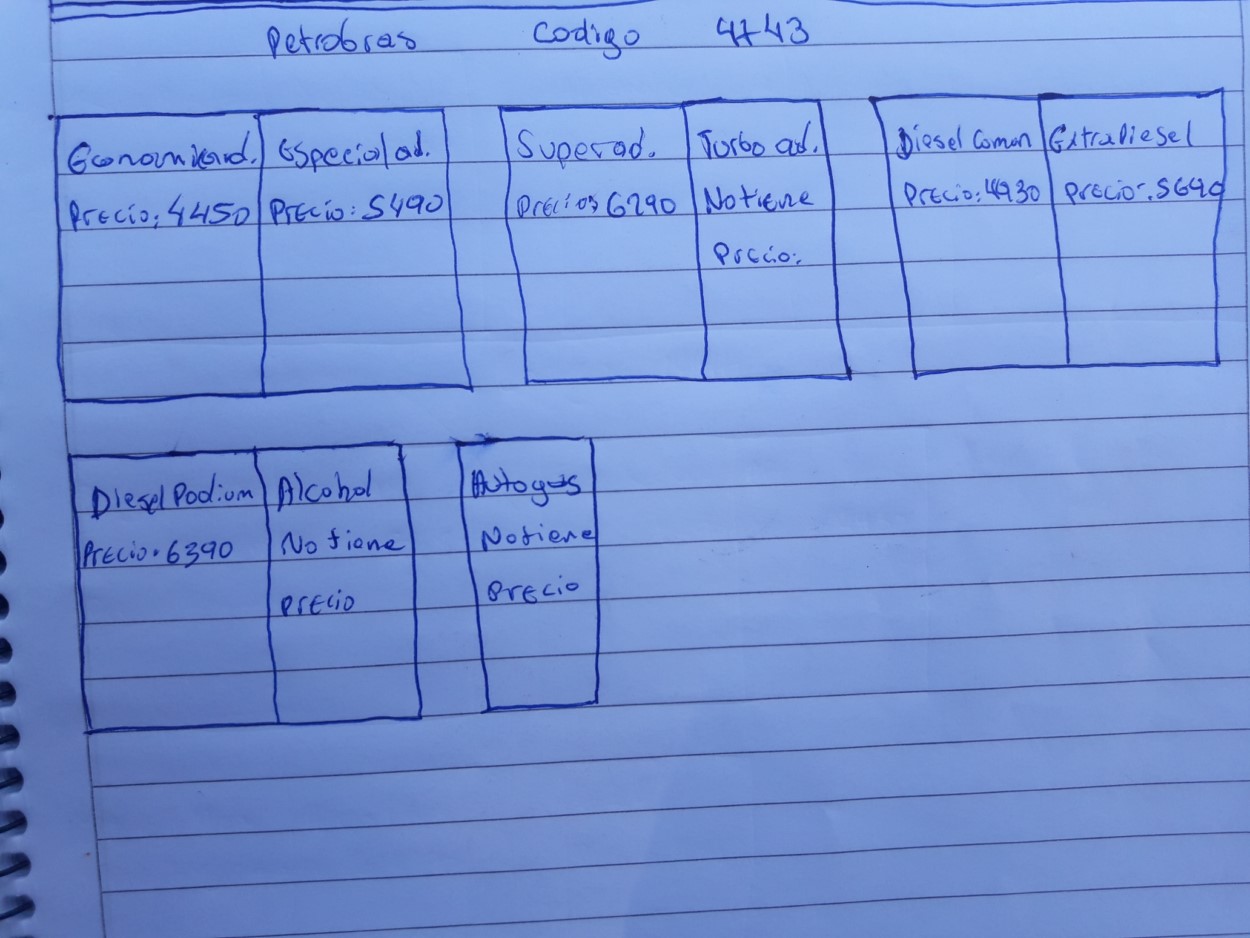 Petrobras Codigo 4743
Economi ad. Especial ad.
Precio: 4450 Precio: 5490
Super ad. Turbo ad.
Precio: 6290 No tiene
Precio:
Diesel Comun Extra Diesel
Precio: 4930 Precio: 5690
Diesel Podium Alcohol
Precio: 6390 No tiene
Precio
Autogas
No tiene
Precio